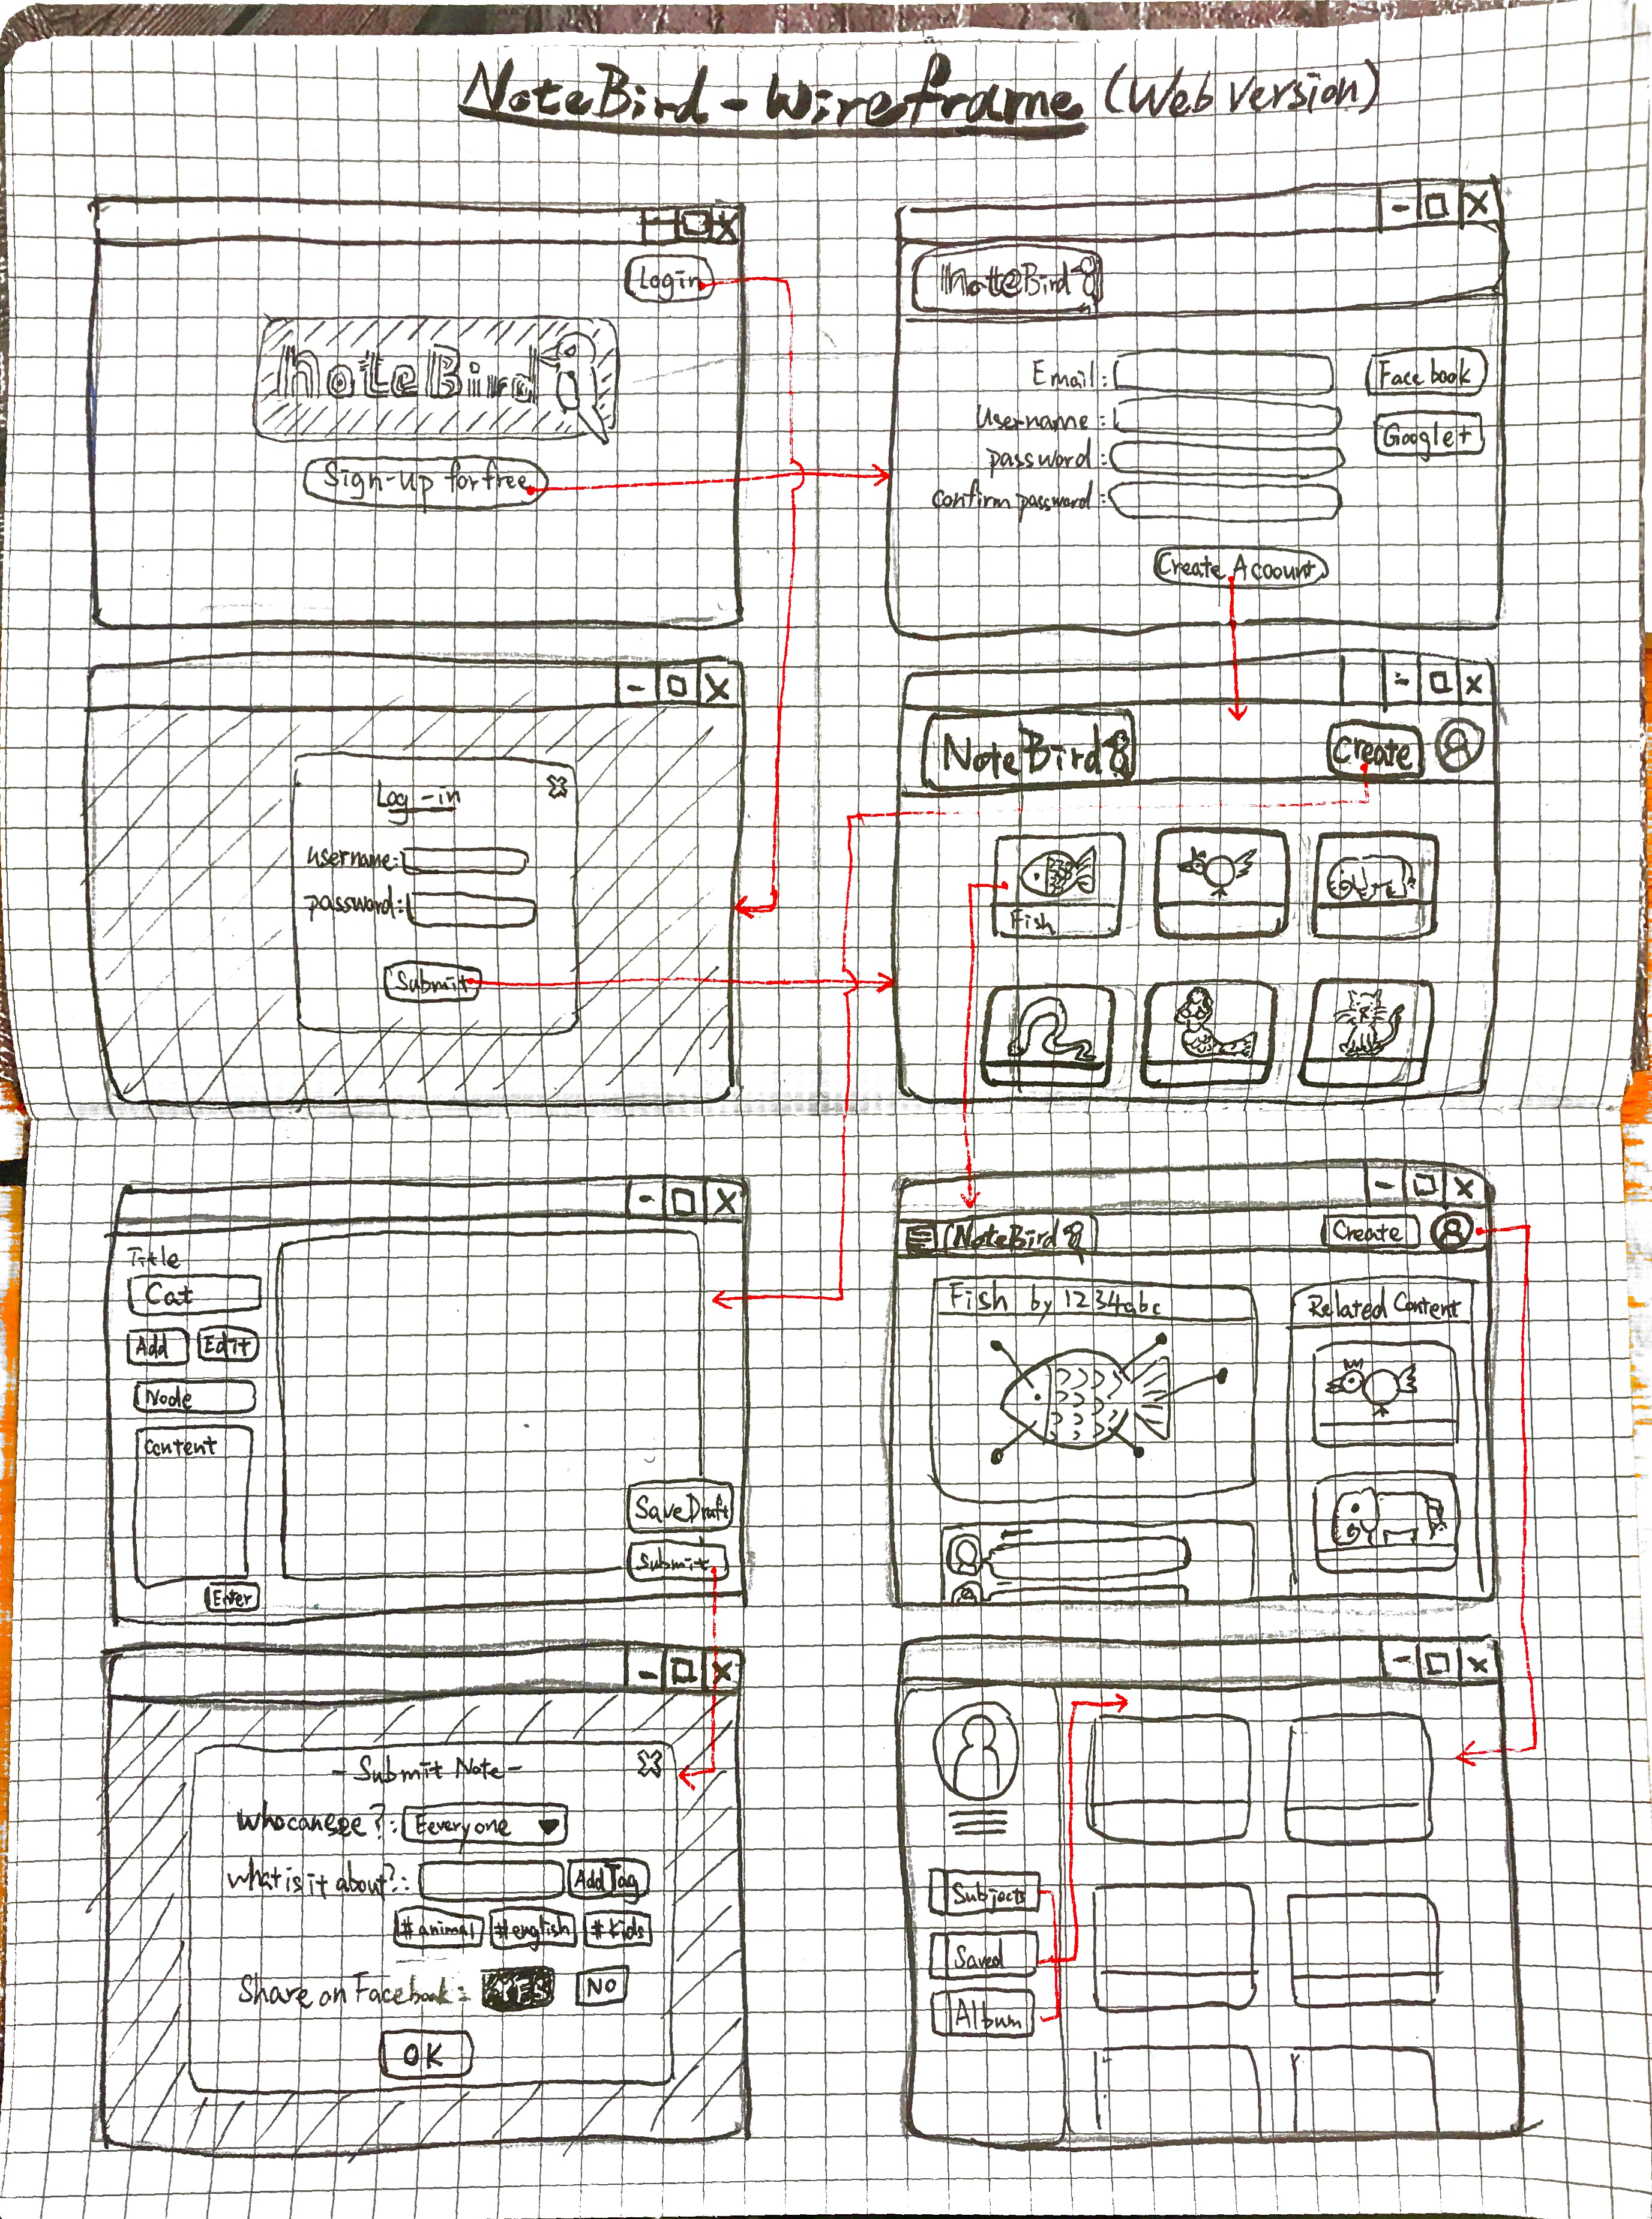 NoteBird - Wireframe (Web Version)
Login
NoteBird
Sign-up for free
NoteBird
Email:
Facebook
Username:
Google+
password:
confirm password:
Create Acoount
Log-in
username:
password:
Submit
NoteBird
Create
Fish
Title
Cat
Add
Edit
Node
Content
Enter
Save Draft
Submit
NoteBird
Create
Fish by 1234abc
Related Content
- Submit Note -
who can see?:
Eeveryone
what is it about?:
Add Tag
#animal
#english
#kids
Share on Facebook:
YES
NO
OK
Subjects
Saved
Album